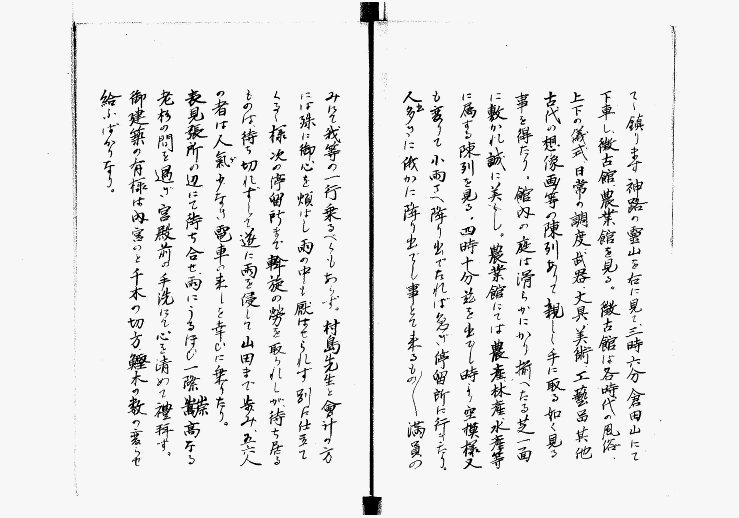 て鎮ります神路の靈山を右に見て三時六分倉田山にて
下車し徴古館農業館を見る。徴古館は各時代の風俗、
上下の儀式日常の調度武器、文具、美術、工藝品其他
古代の想像画等の陳列ありて親しく手に取る如く見る
事を得たり。館内の庭は滑らかにかり揃へたる芝一面
に敷かれ誠に美はし。農業館にては農産林産水産等
に属する陳列を見る。四時十分玆を出でし時より空模様又
も変りて小雨さへ降り出でたれば急ぎ停留所に行きたり。
人多きに俄かに降り出でし事とて来るもの〱満員の
みにて我等の一行乗るべくもあらず。村島先生と會計の方
には殊に御心を煩はし雨の中も厭はせられず別に仕立て
くる様次の停留所まで斡旋の勞を取られしが、待ち居る
ものは待ち切れずして遂に雨を侵して山田まで歩み、五六人
の者は人氣少なき電車の来しを幸ひに乗りたり。
表見張所の辺にて待ち合せ、雨にうるほひ一際崇高なる
老杉の間を過ぎ宮殿前の手洗にて心を清めて禮拜す。
御建築の有様は内宮のと千木の切方鰹木の数の変らせ
給ふばかりなり。